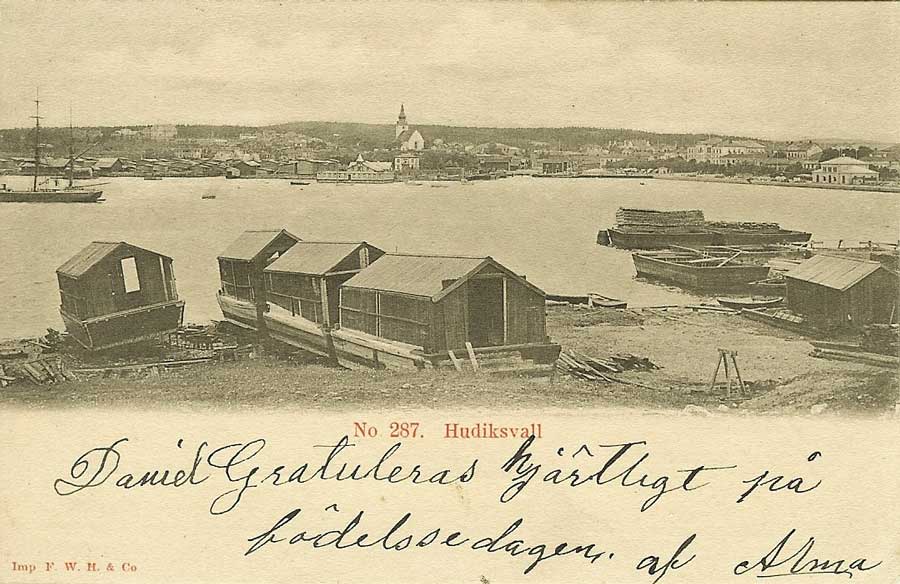 No 287. Hudiksvall
Daniel Gratuleras hjärtligt på
födelssedagen. af Alma
Imp F. W. H. & Co